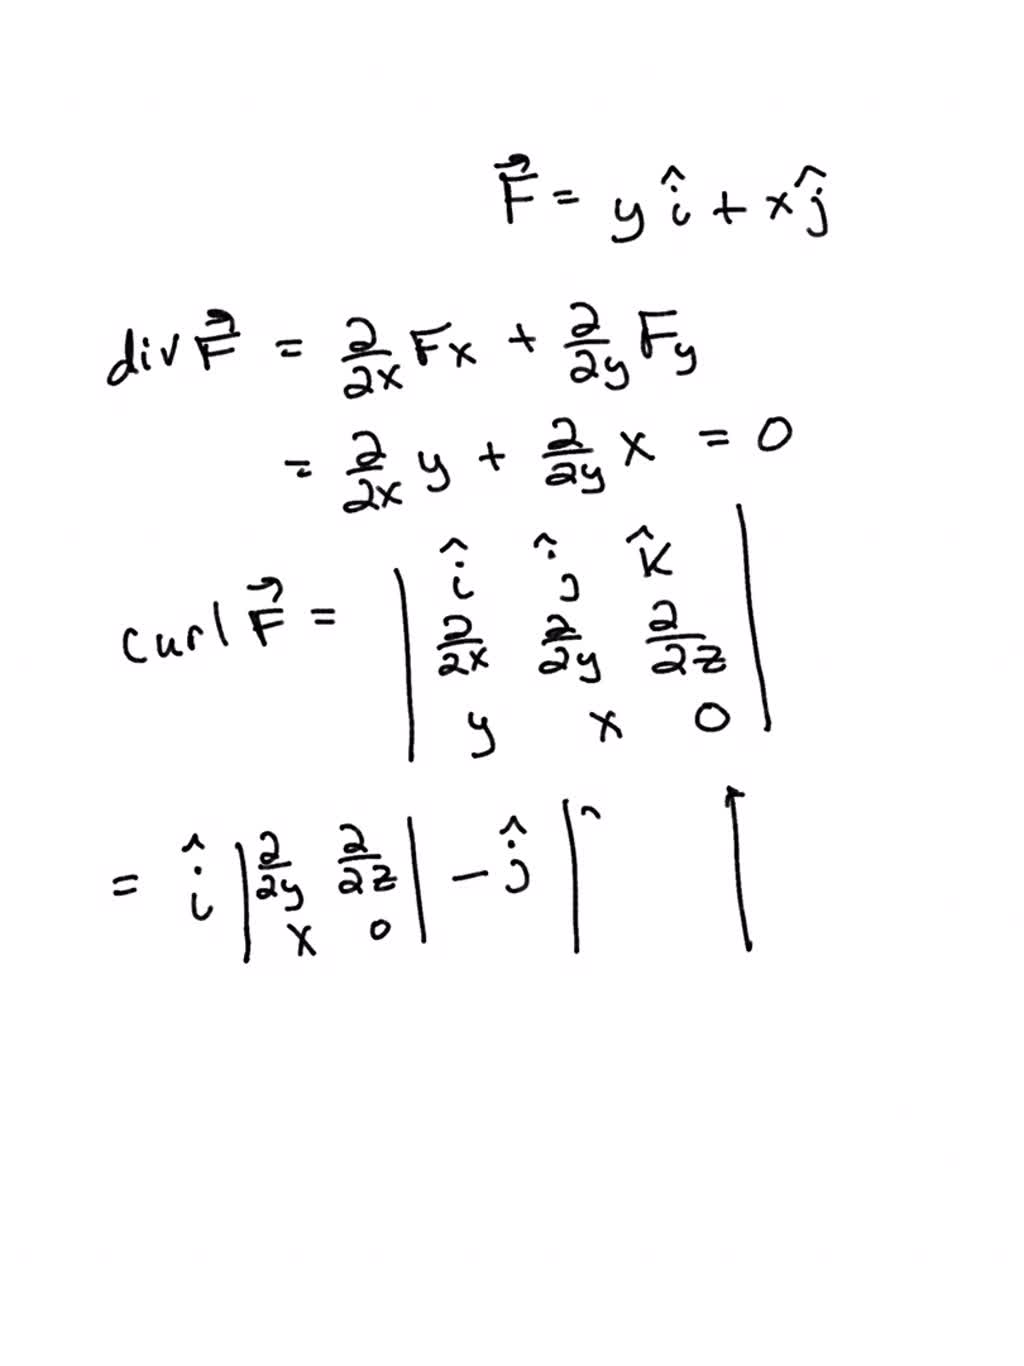 F⃗ = y î + x ĵ
div F⃗ = ∂/∂x Fx + ∂/∂y Fy
= ∂/∂x y + ∂/∂y x = 0
curl F⃗ = | î ĵ k̂ |
| ∂/∂x ∂/∂y ∂/∂z |
| y x 0 |
= î | ∂/∂y ∂/∂z | - ĵ | |
| x 0 |